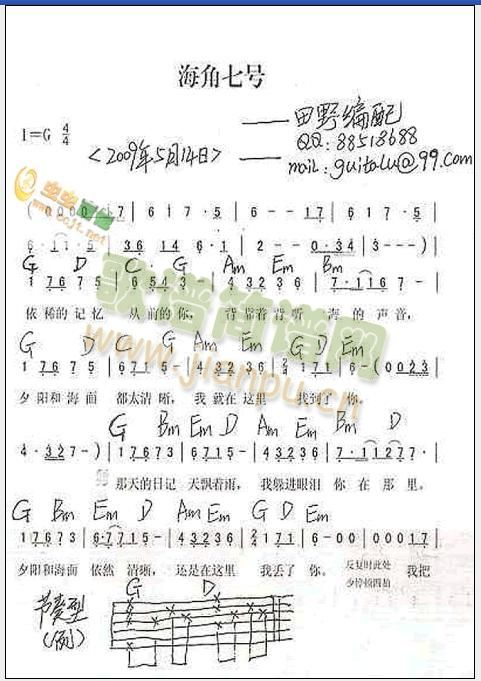 海角七号
1=G 4/4
——田野编配
QQ: 88518688
<2009年5月14日> —— mail: guitalu@99.com
虫虫吉他
www.ccjt.net
(0 0 0 0 1 7 | 6 1 7 · 5 | 6 - - 1 7 | 6 1 7 · 5 |
6 · 1 1 · 5 | 3 6 1 4 6 · 1 | 2 - - 0 · 3 4 | 3 - - - )
G D C G Am Em Bm
1 7 6 7 5 | 6 5 4 3 - | 4 3 2 3 6 | 7 · 1 1 6 7 - |
依稀的记忆 从前的你， 背靠着背听 海的声音，
歌谱简谱网
www.jianpu.cn
G D C G Am Em G D Em
1 7 6 7 5 | 6 7 1 5 · | 4 3 2 3 6 | 2/4 1 7 1 | 6 - (0 0 2 3 |
夕阳和海面 都太清晰， 我就在这里 我到了你，
G Bm Em D Am Em Bm D
4 · 3 3 2 7 - ) | 1 7 6 7 3 | 6 7 1 5 · | 4 3 2 3 6 | 7 · 1 1 2 7 7 |
那天的日记 天飘着雨， 我躲进眼泪 你在那里。
G Bm Em D Am Em G D Em
1 7 6 7 3 | 6 · 7 7 1 5 | 4 3 2 3 6 | 2/4 1 7 1 | 6 - 0 0 | 0 0 0 1 7 |
夕阳和海面 依然清晰， 还是在这里 我丢了你。 反复时此处 我把
G D
节奏型
(例)